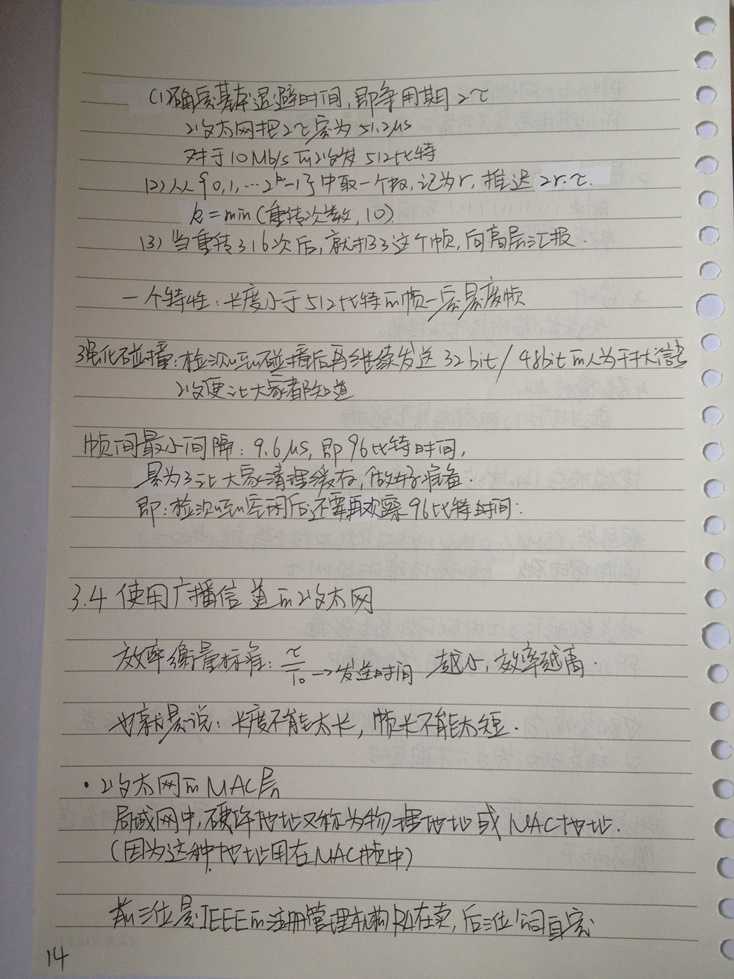 (1)确定基本退避时间,即争用期2τ
以太网把2τ定为51.2μs
对于10Mb/s的以发512比特
(2)从{0,1,…2^k-1}中取一个数,记为r,推迟2r·τ.
k=min(重传次数,10)
(3)当重传316次后,就扔了这个帧,向高层汇报.
一个特性:长度小于512比特的帧一定是废帧
强化碰撞:检测到碰撞后再继续发送32bit/48bit的人为干扰信号
以便让大家都知道
帧间最小间隔:9.6μs,即96比特时间,
是为了让大家清理缓存,做好准备.
即:检测到空闲后还要再观察96比特时间.
3.4 使用广播信道的以太网
效率衡量标准:τ/T0→发送时间 越小,效率越高.
也就是说:长度不能太长,帧长不能太短.
·以太网的MAC层
局域网中,硬件地址又称为物理地址或MAC地址.
(因为这种地址用在MAC帧中)
前三位是IEEE的注册管理机构RA在卖,后三位公司自定
14